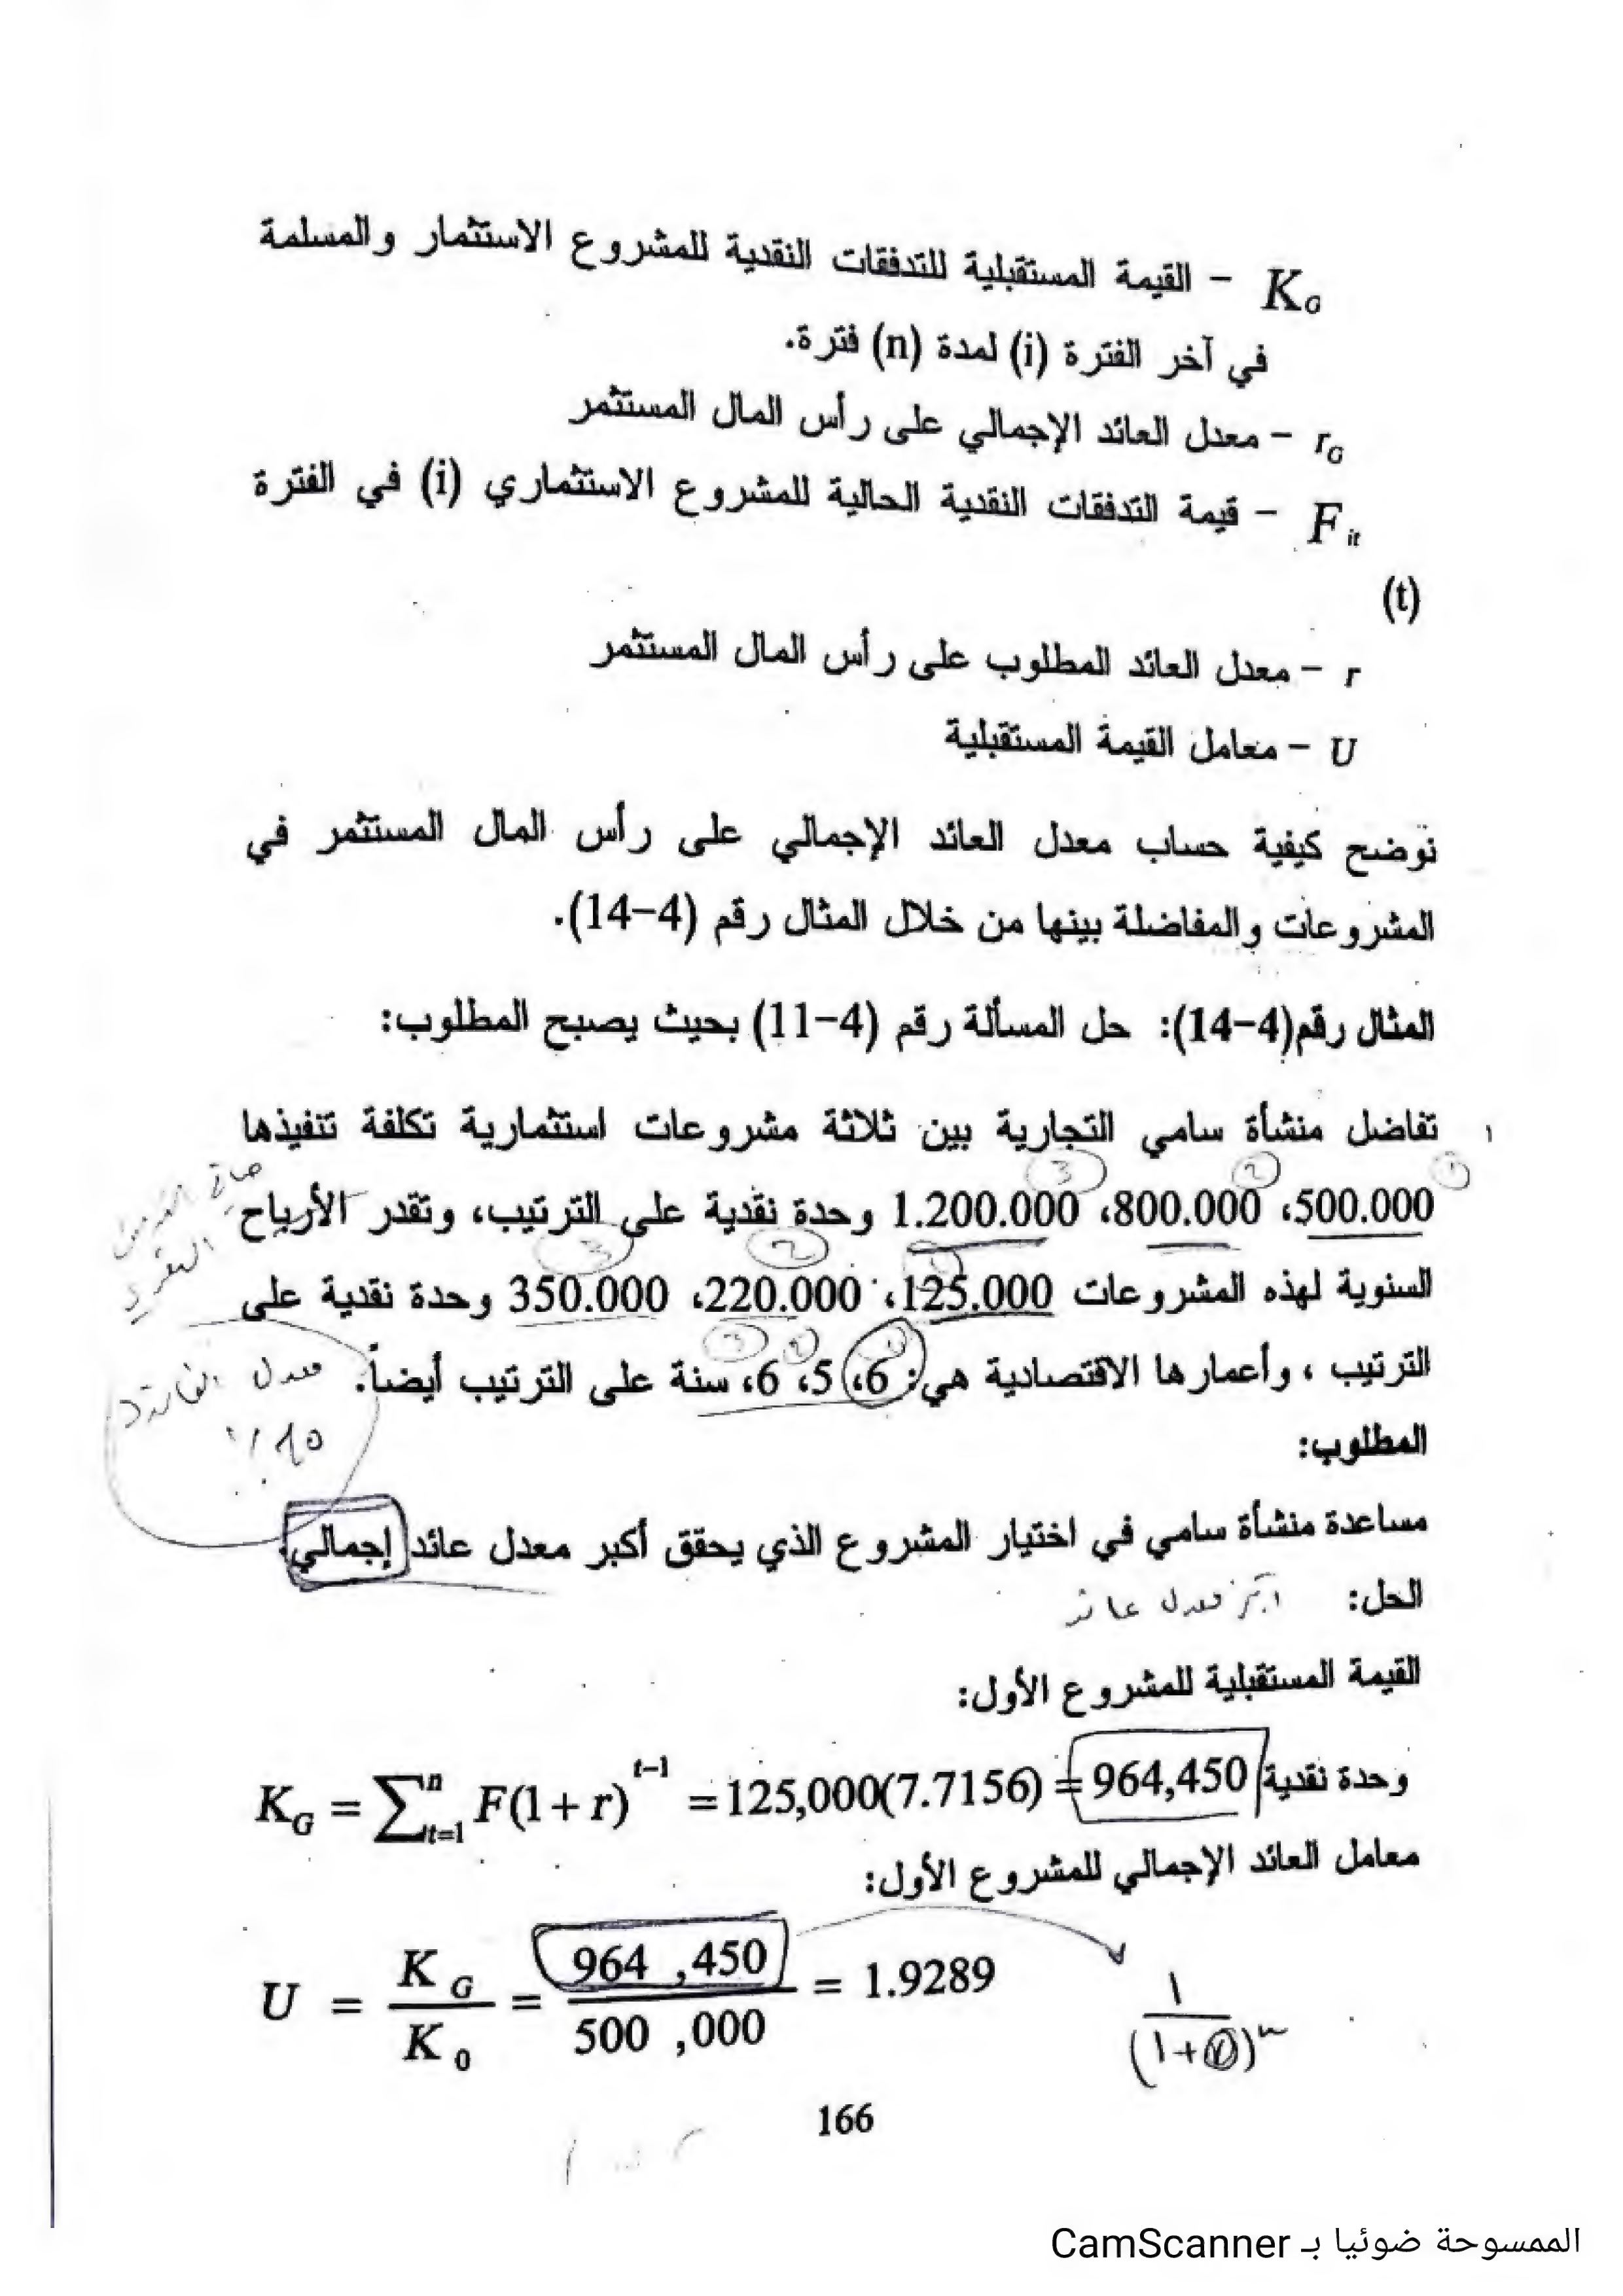 K_G - القيمة المستقبلية للتدفقات النقدية للمشروع الاستثمار والمسلمة
في آخر الفترة (i) لمدة (n) فترة.
r_G - معدل العائد الإجمالي على رأس المال المستثمر
F_it - قيمة التدفقات النقدية الحالية للمشروع الاستثماري (i) في الفترة
(t)
r - معدل العائد المطلوب على رأس المال المستثمر
U - معامل القيمة المستقبلية
نوضح كيفية حساب معدل العائد الإجمالي على رأس المال المستثمر في
المشروعات والمفاضلة بينها من خلال المثال رقم (4-14).
المثال رقم(4-14): حل المسألة رقم (4-11) بحيث يصبح المطلوب:
تفاضل منشأة سامي التجارية بين ثلاثة مشروعات استثمارية تكلفة تنفيذها
① ② ③
500.000، 800.000، 1.200.000 وحدة نقدية على الترتيب، وتقدر الأرباح
① ② ③
السنوية لهذه المشروعات 125.000، 220.000، 350.000 وحدة نقدية على
① ② ③
الترتيب ، وأعمارها الاقتصادية هي: 6، 5، 6، سنة على الترتيب أيضاً.
معدل الفائدة
المطلوب:
مساعدة منشأة سامي في اختيار المشروع الذي يحقق أكبر معدل عائد إجمالي.
الحل: أكبر معدل عائد
القيمة المستقبلية للمشروع الأول:
K_G = ∑_{t=1}^{n} F(1+r)^{t-1} = 125,000(7.7156) = 964,450 وحدة نقدية
معامل العائد الإجمالي للمشروع الأول:
U = K_G / K_0 = 964,450 / 500,000 = 1.9289
166
الممسوحة ضوئيا بـ CamScanner